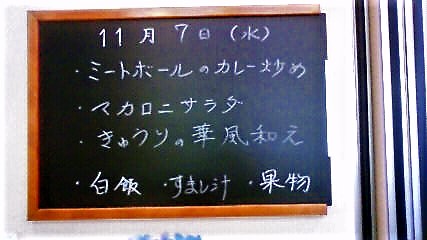 11月7日(水)
・ミートボールのカレー炒め
・マカロニサラダ
・きゅうりの華風和え
・白飯 ・すまし汁 ・果物